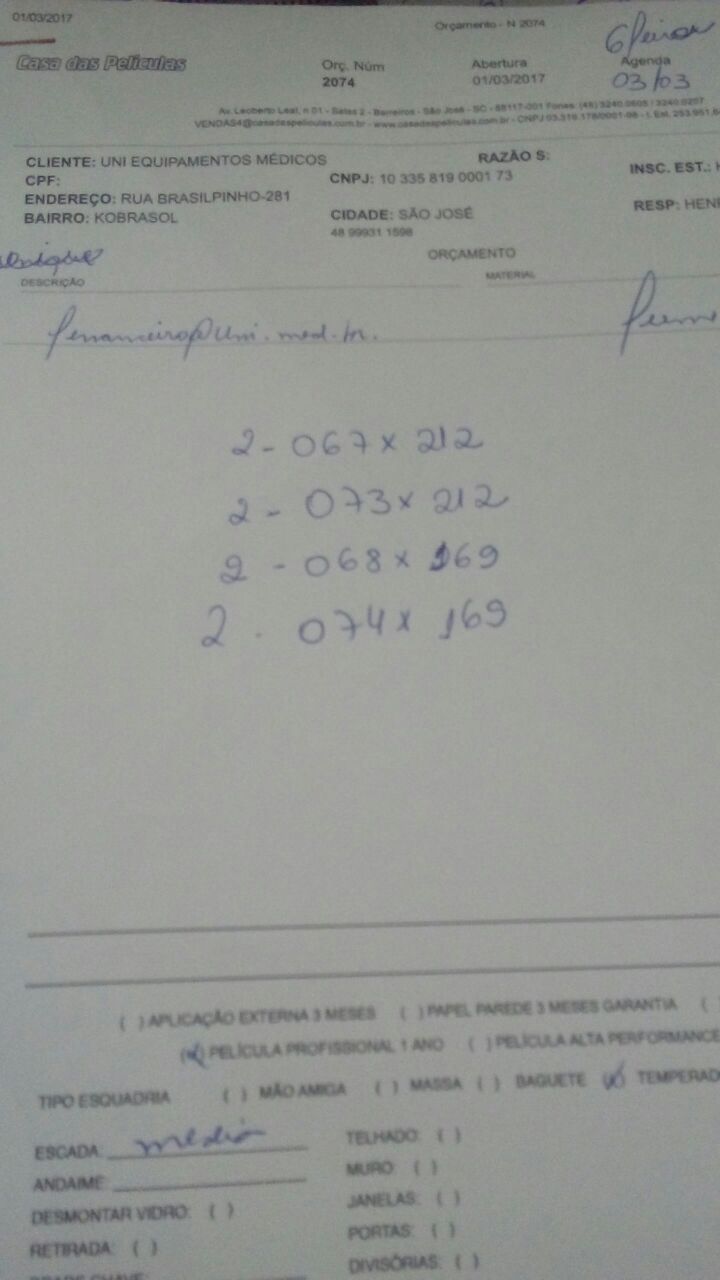 01/03/2017
Orçamento - N 2074
6 feira
Casa das Películas
Orç. Núm
Abertura
Agenda
2074
01/03/2017
03/03
Av. Leoberto Leal, n 01 - Salas 2 - Barreiros - São José - SC - 88117-001 Fones: (48) 3240.0605 / 3240.0207
VENDAS4@casadaspeliculas.com.br - www.casadaspeliculas.com.br - CNPJ 03.319.178/0001-98 - I. Est. 253.951.6
CLIENTE: UNI EQUIPAMENTOS MÉDICOS
RAZÃO S:
CPF:
CNPJ: 10 335 819 0001 73
INSC. EST.:
ENDEREÇO: RUA BRASILPINHO-281
BAIRRO: KOBRASOL
CIDADE: SÃO JOSÉ
RESP: HENR
48 99931 1598
ORÇAMENTO
DESCRIÇÃO
MATERIAL
2 - 067 x 212
2 - 073 x 212
2 - 068 x 169
2 - 074 x 169
( ) APLICAÇÃO EXTERNA 3 MESES ( ) PAPEL PAREDE 3 MESES GARANTIA (
(x) PELÍCULA PROFISSIONAL 1 ANO ( ) PELÍCULA ALTA PERFORMANCE
TIPO ESQUADRIA ( ) MÃO AMIGA ( ) MASSA ( ) BAGUETE (x) TEMPERAD
ESCADA: média
TELHADO: ( )
ANDAIME:
MURO: ( )
DESMONTAR VIDRO: ( )
JANELAS: ( )
RETIRADA: ( )
PORTAS: ( )
DIVISÓRIAS: ( )